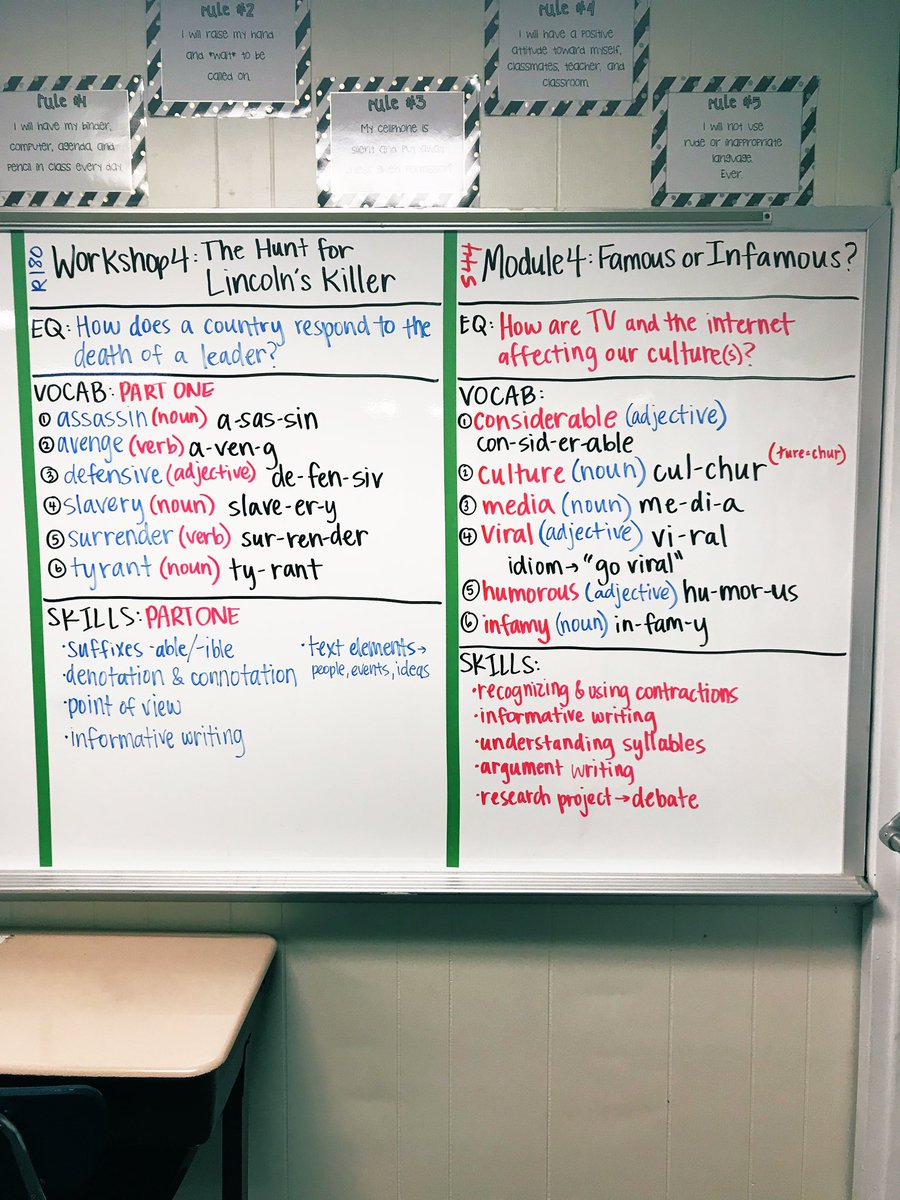 Rule #1
I will have my binder,
computer, agenda, and
pencil in class every day.
Rule #2
I will raise my hand
and *wait* to be
called on.
Rule #3
My cellphone is
silent and put away
unless given permission.
Rule #4
I will have a positive
attitude toward myself,
classmates, teacher, and
classroom.
Rule #5
I will not use
rude or inappropriate
language.
Ever.
R180
Workshop 4: The Hunt for
Lincoln's Killer
EQ: How does a country respond to the
death of a leader?
VOCAB: PART ONE
① assassin (noun) a-sas-sin
② avenge (verb) a-ven-g
③ defensive (adjective) de-fen-siv
④ slavery (noun) slave-er-y
⑤ surrender (verb) sur-ren-der
⑥ tyrant (noun) ty-rant
SKILLS: PART ONE
·suffixes -able/-ible
·denotation & connotation
·point of view
·informative writing
·text elements→
people, events, ideas
S44
Module 4: Famous or Infamous?
EQ: How are TV and the internet
affecting our culture(s)?
VOCAB:
① considerable (adjective)
con-sid-er-able
② culture (noun) cul-chur (ture=chur)
③ media (noun) me-di-a
④ viral (adjective) vi-ral
idiom→"go viral"
⑤ humorous (adjective) hu-mor-us
⑥ infamy (noun) in-fam-y
SKILLS:
·recognizing & using contractions
·informative writing
·understanding syllables
·argument writing
·research project→debate